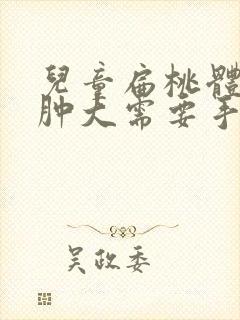 兒童扁桃體
肿大需要手
吴政委